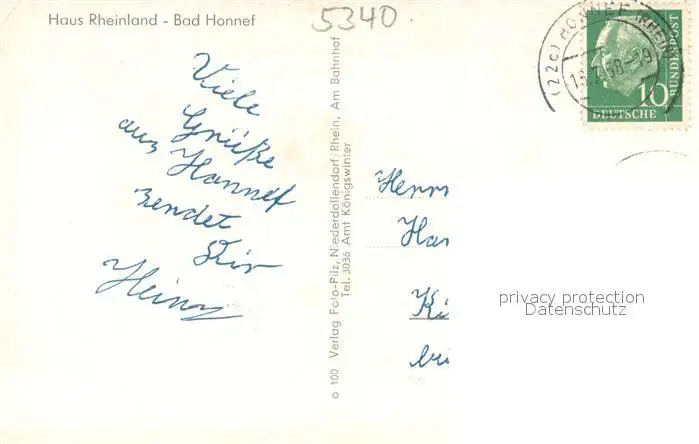 Haus Rheinland - Bad Honnef
5340
Viele
Grüße
aus Honnef
sendet
Dir
Heinz
o 100 Verlag Foto-Pilz, Niederdollendorf/Rhein, Am Bahnhof
Tel. 3036 Amt Königswinter
(22c) HONNEF (RHEIN)
10
DEUTSCHE
BUNDESPOST
Herrn
Han
Ki
bei
privacy protection
Datenschutz